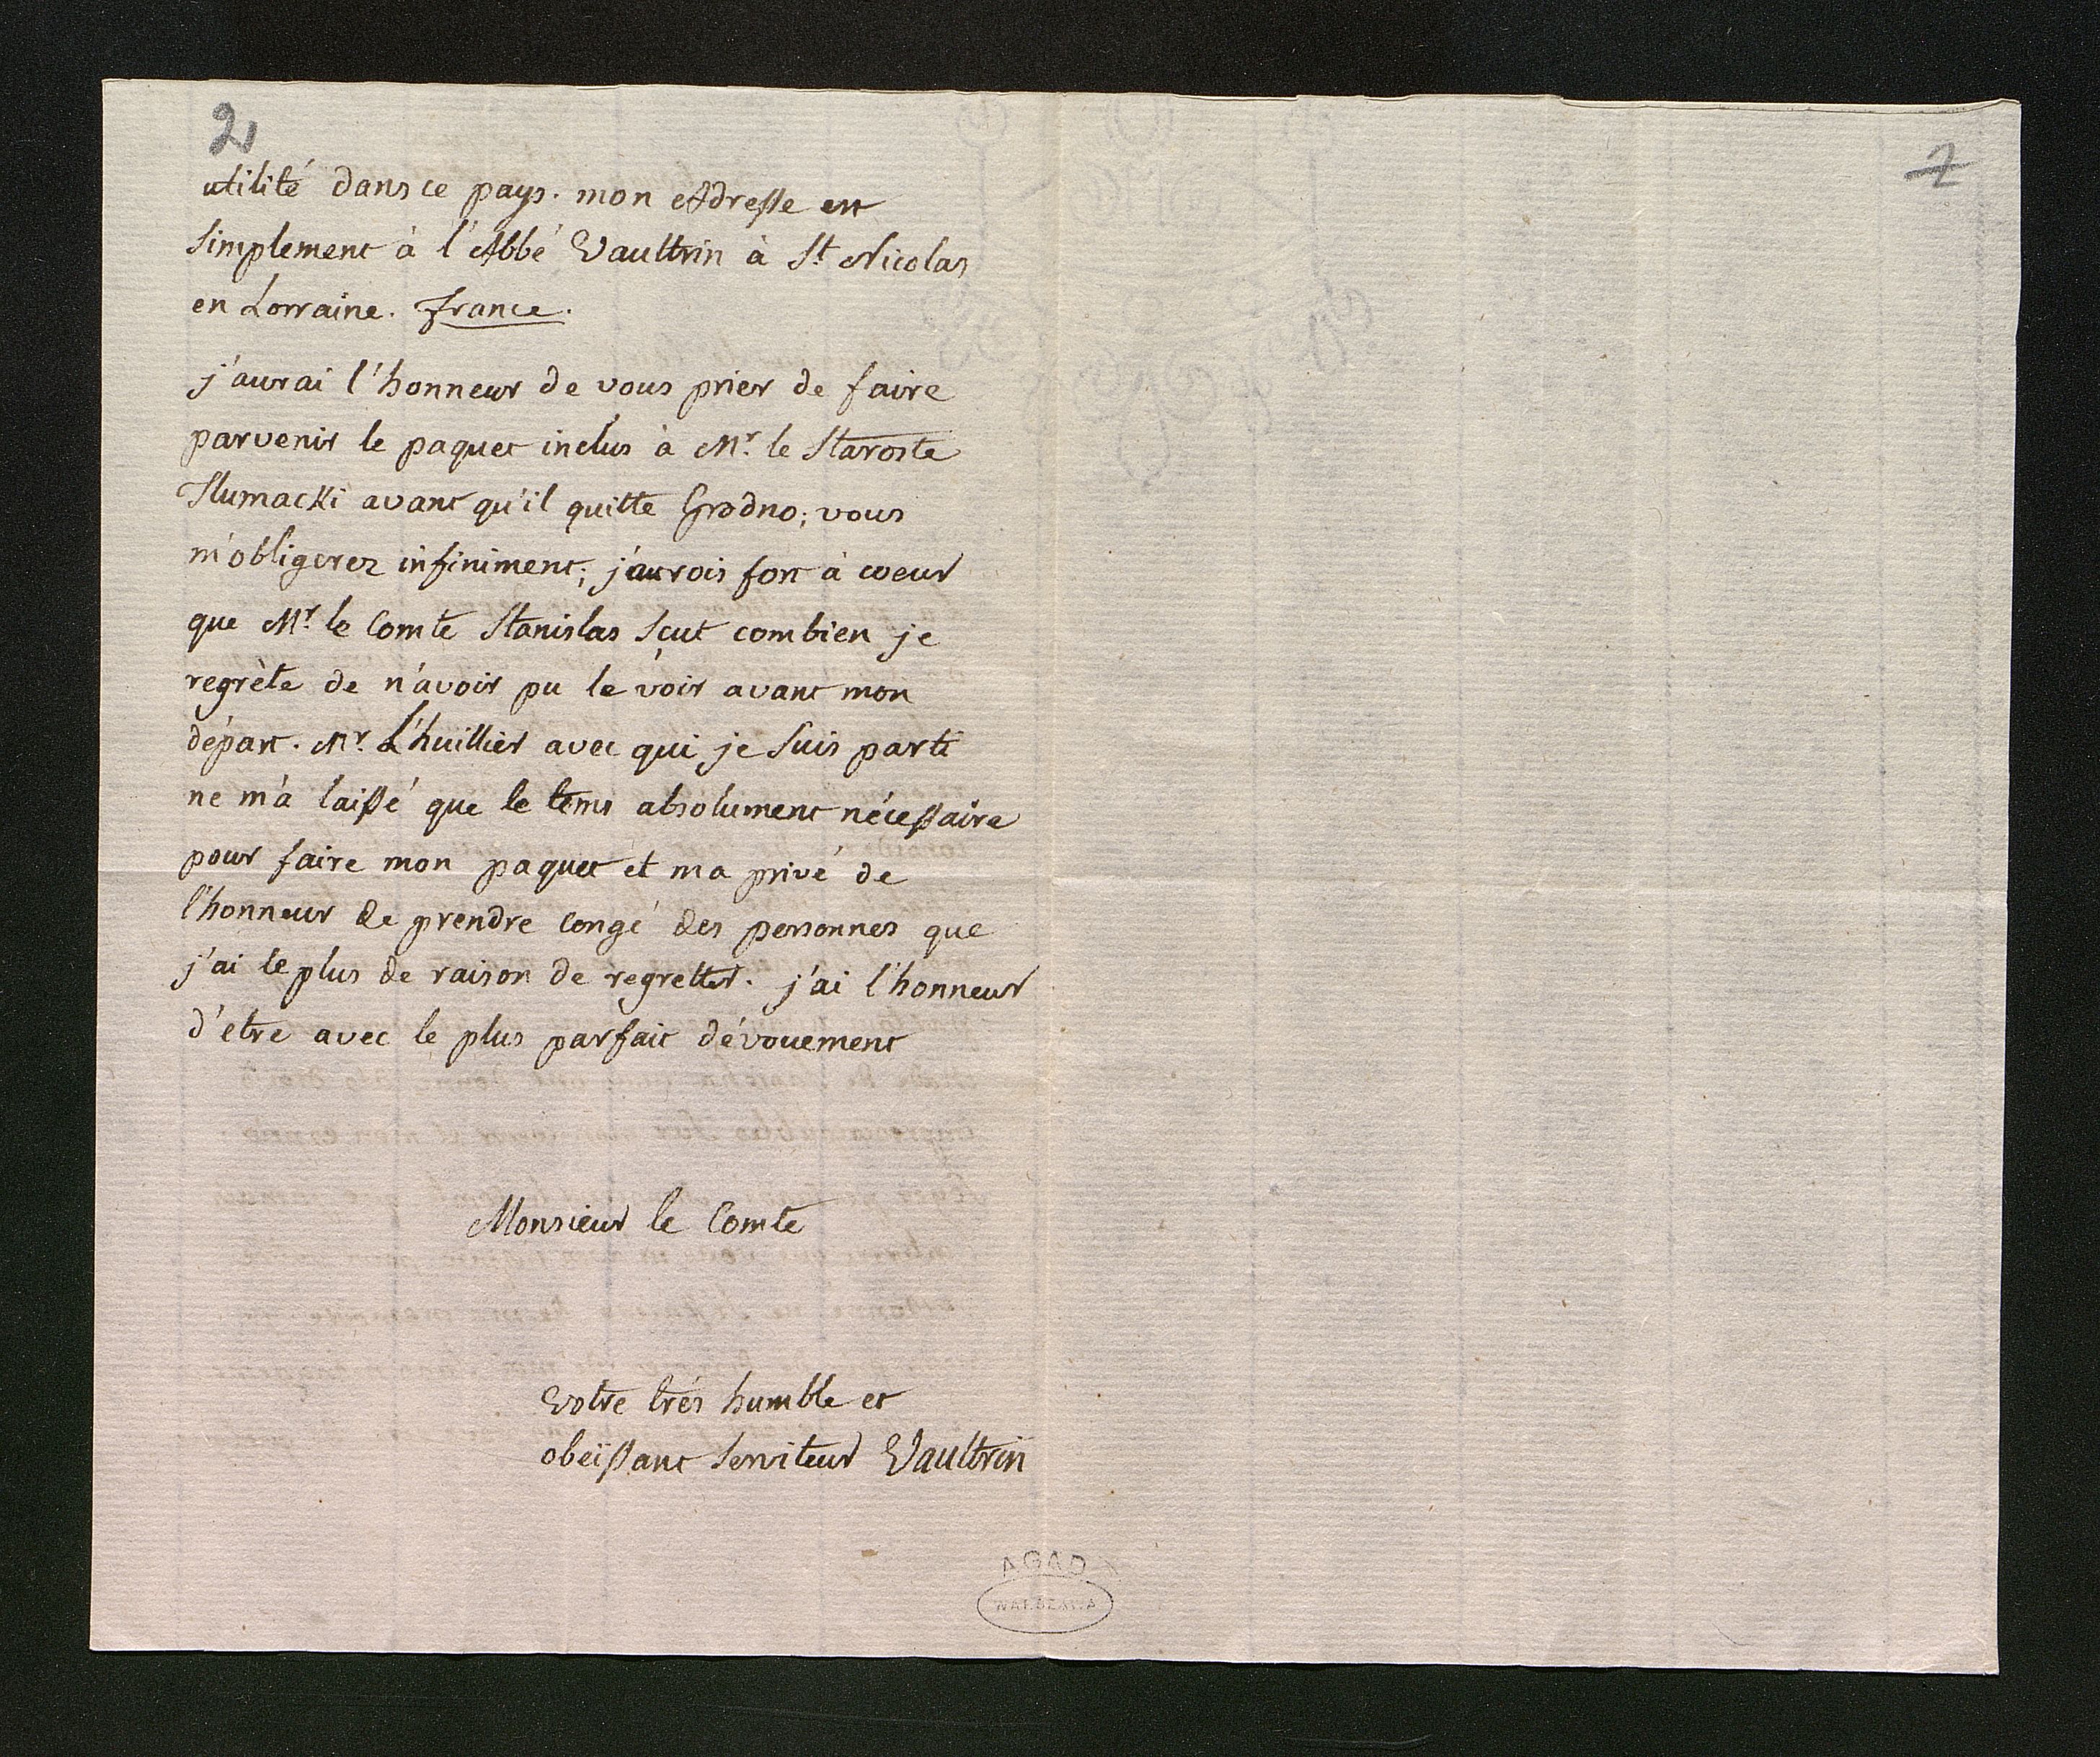 2
7
utilité dans ce pays. mon Adresse est
simplement à l'Abbé Vaultrin à St Nicolas
en Lorraine. france.
j'aurai l'honneur de vous prier de faire
parvenir le paquet inclus à Mr. le Staroste
Slumacki avant qu'il quitte Grodno; vous
m'obligerez infiniment; j'aurois fort à coeur
que Mr. le Comte Stanislas sçut combien je
regrète de n'avoir pu le voir avant mon
départ. Mr. L'huillier avec qui je suis parti
ne m'a laissé que le tems absolument nécessaire
pour faire mon paquet et ma privé de
l'honneur de prendre congé des personnes que
j'ai le plus de raison de regretter. j'ai l'honneur
d'etre avec le plus parfait dévouement
Monsieur le Comte
Votre trés humble et
obeïssant serviteur Vaultrin
AGAD
WARSZAWA